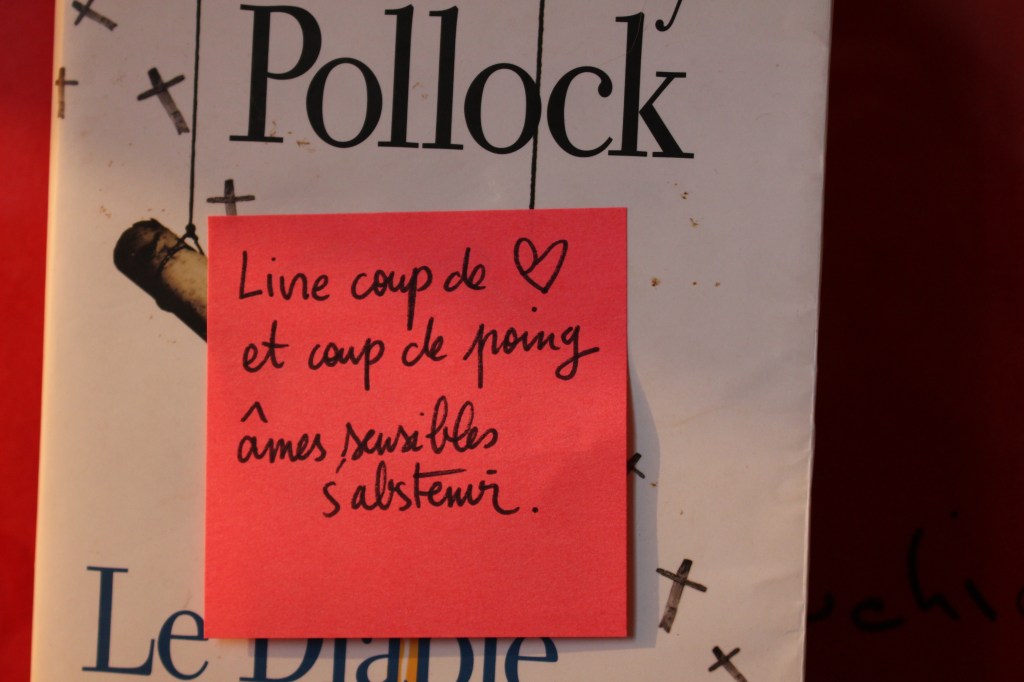 Pollock
Livre coup de ♡
et coup de poing
âmes sensibles
s'abstenir.
Le Diable